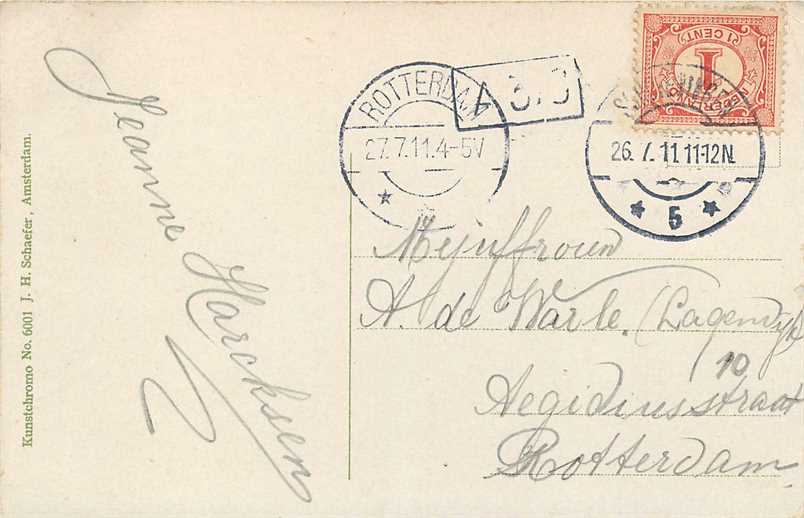 Kunstchromo No. 6001 J. H. Schaefer, Amsterdam.
Jeanne Harcksen
ROTTERDAM
27.7.11.4-5V
26.7.11 11-12N
5
1 CENT
1
NEDERLAND
Mejuffrouw
A. de Warle. (Lagendijk
10
Aegidiusstraat
Rotterdam